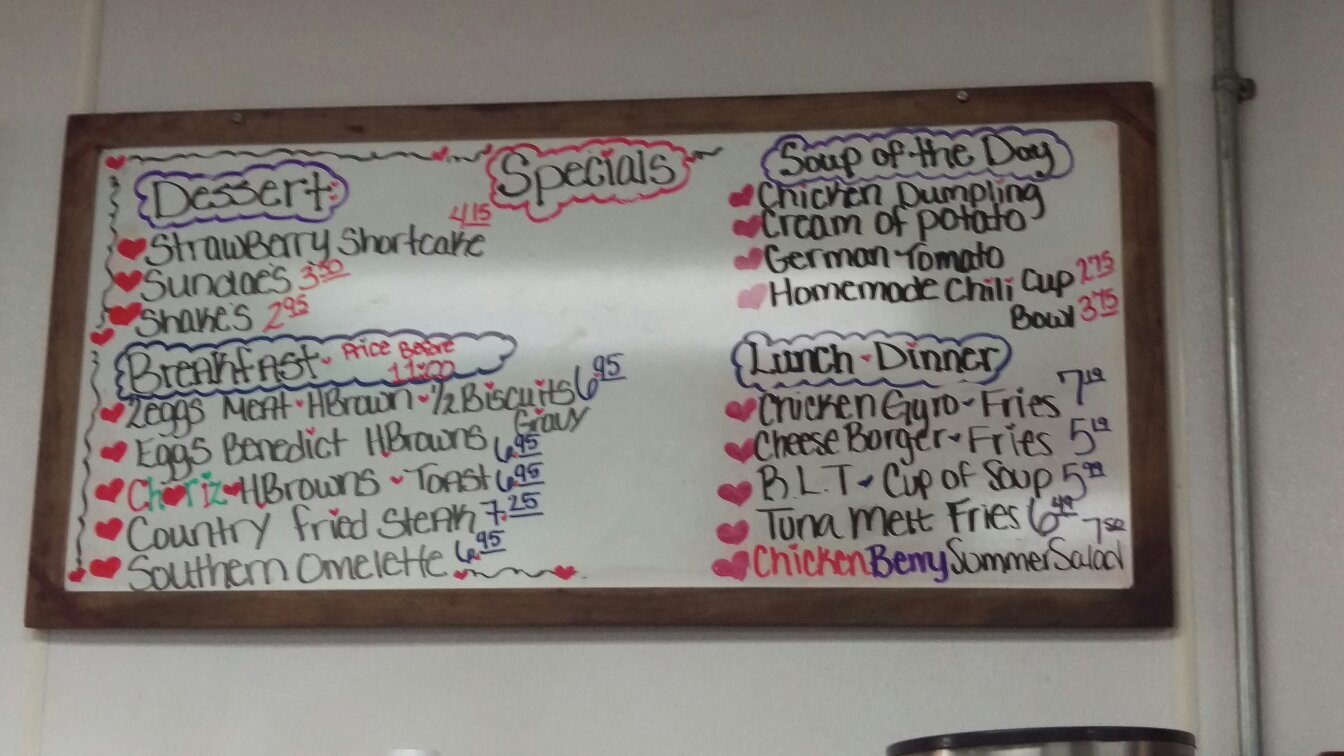 Specials
Dessert:
Strawberry Shortcake 4.15
Sundaes 3.50
Shakes 2.95
Breakfast - Price Before 11:00
2 eggs Meat - HBrown - 1/2 Biscuits Gravy 6.95
Eggs Benedict HBrowns 6.95
Choriz HBrowns - Toast 6.95
Country Fried Steak 7.25
Southern Omelette 6.95
Soup of the Day
Chicken Dumpling
Cream of Potato
German Tomato
Homemade Chili Cup 2.75
Bowl 3.75
Lunch - Dinner
Chicken Gyro - Fries 7.19
Cheese Borger - Fries 5.19
B.L.T - Cup of Soup 5.99
Tuna Melt Fries 6.49
Chicken Berry Summer Salad 7.50